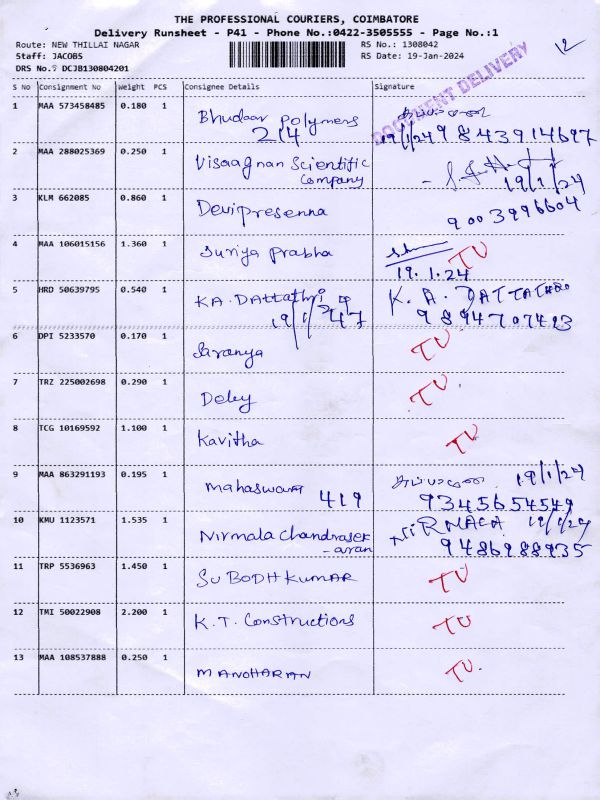 THE PROFESSIONAL COURIERS, COIMBATORE
Delivery Runsheet - P41 - Phone No.:0422-3505555 - Page No.:1
Route: NEW THILLAI NAGAR RS No.: 1308042
Staff: JACOBS RS Date: 19-Jan-2024
DRS No.9 DCJB130804201
DOCUMENT DELIVERY
12
S No Consignment No Weight PCS Consignee Details Signature
1 MAA 573458485 0.180 1 Bhudaar Polymers
214 19/1/24 9843914697
2 MAA 288025369 0.250 1 Visaagnan Scientific
Company 19/1/24
3 KLM 662085 0.860 1 Devipresenna 9003996604
4 MAA 106015156 1.360 1 Suriya Prabha TU
19.1.24
5 HRD 50639795 0.540 1 K.A. Dattathri K. A. DATTATHRI
19/1/24 47 9894707493
6 DPI 5233570 0.170 1 Saranya TU
7 TRZ 225002698 0.290 1 Deley TU
8 TCG 10169592 1.100 1 Kavitha TU
9 MAA 863291193 0.195 1 Mahaswari 19/1/24
419 9345654549
10 KMU 1123571 1.535 1 Nirmala Chandrasek NIRMALA 19/1/24
-aran 9486988935
11 TRP 5536963 1.450 1 SUBODH KUMAR TU
12 TMI 50022908 2.200 1 K.T. Constructions TU
13 MAA 108537888 0.250 1 MANOHARAN TU.